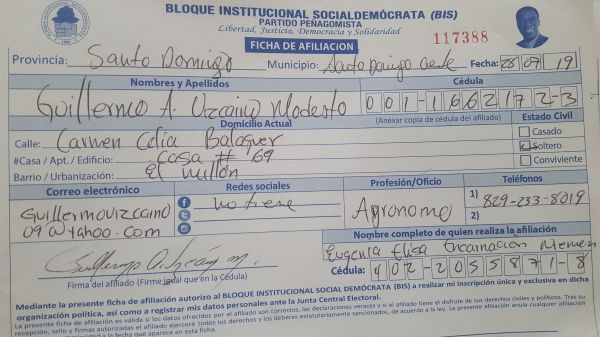 BLOQUE INSTITUCIONAL SOCIALDEMÓCRATA (BIS)
PARTIDO PEÑAGOMISTA
Libertad, Justicia, Democracia y Solidaridad
117388
FICHA DE AFILIACIÓN
Provincia: Santo Domingo Municipio: Santo Domingo Oeste Fecha: 28/07/19
Nombres y Apellidos Cédula
Guillermo A. Vizcaino Modesto 001-1662172-3
(Anexar copia de cédula del afiliado)
Domicilio Actual Estado Civil
Calle: Carmen Celia Balaguer Casado
#Casa / Apt. / Edificio: Casa # 69 Soltero
Barrio / Urbanización: El millon Conviviente
Correo electrónico Redes sociales Profesión/Oficio Teléfonos
Guillermovizcaino no tiene Agronomo 1) 829-233-8019
09@yahoo.com 2)
Nombre completo de quien realiza la afiliación
Eugenia Elisa Encarnacion
Firma del afiliado (Firme igual que en la Cédula) Cédula: 402-2055871-8
Mediante la presente ficha de afiliación autorizo al BLOQUE INSTITUCIONAL SOCIAL DEMÓCRATA (BIS) a realizar mi inscripción única y exclusiva en dicha
organización política, así como a registrar mis datos personales ante la Junta Central Electoral.
La presente ficha de afiliación es válida si los datos ofrecidos por el afiliado son correctos, las declaraciones veraces y si el afiliado tiene el disfrute de sus derechos civiles y políticos. Tras su
recepción, sello y firmas autorizadas el afiliado ejercerá todos los derechos y los deberes estatutariamente sancionados, de acuerdo a la ley. La presente afiliación anula cualquier afiliación
a la fecha que aparece en esta ficha.